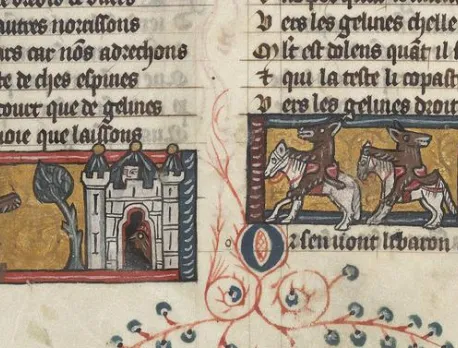 autres norrissons
ars car nos adrechons
te de ches espines
court que de gelines
uoie que laissons
ers les gelines chelle
st est dolens quāt il
qui la teste li copast
ers les gelines droit
r sen uont le baron